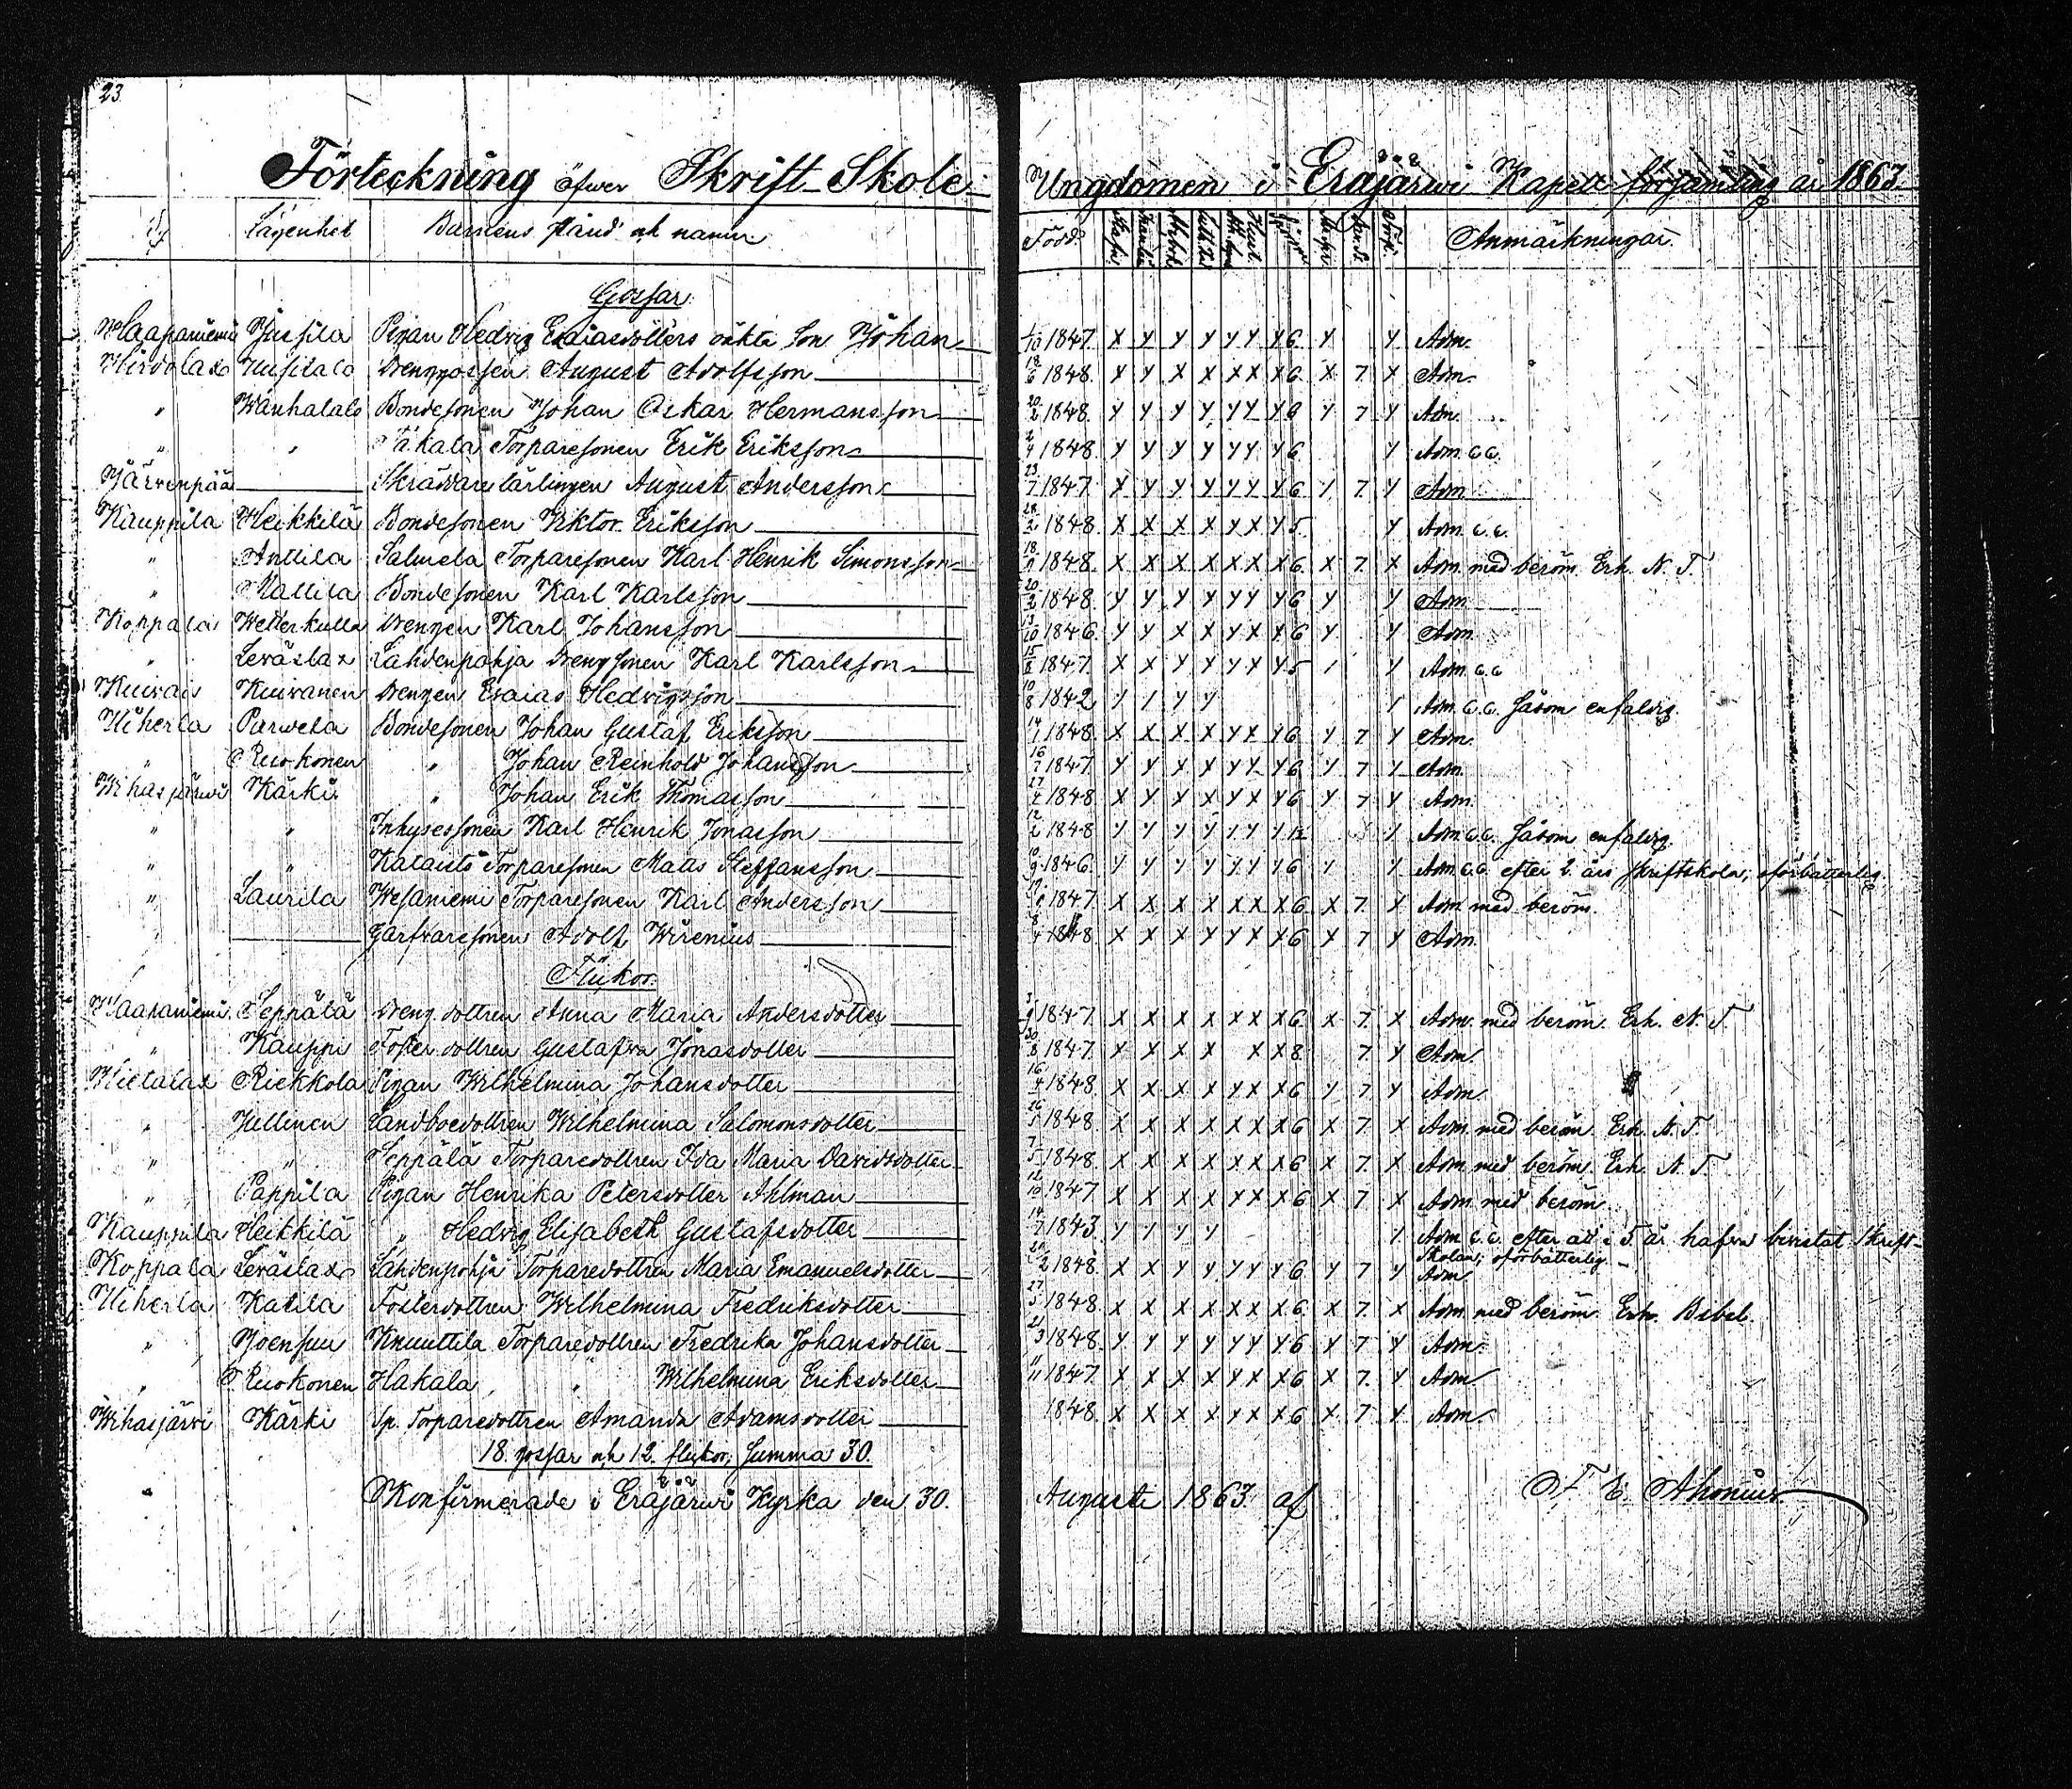 23.
Förteckning öfver Skrift-Skole-Ungdomen i Eräjärwi Kapell församling år 1863.
By Lägenhet Barnens stånd och namn Född Anmärkningar.
Gossar
Haapaniemi Jussila Pigan Hedvig Esaiasdotters oäkta son Johan 1847. x y y y y y y 6 y y Adm.
Hirdolax Uusitalo Drenggossen August Adolfsson 18/6 1848. y y x x x x x 6 x 7 x Adm.
" Wanhatalo Bondesonen Johan Oskar Hermansson 20/2 1848. y y y y y y y 6 y 7 y Adm.
" " Takala Torparesonen Erik Eriksson 1848. y y y y y y y 6 y Adm. c.c.
Järvenpää Skräddarelärlingen August Andersson 23/7 1847. x y y y y y y 6 1 7 y Adm
Kauppila Heikkilä Bondesonen Viktor Eriksson 28/2 1848. x x x x y x y 5. y Adm. c.c.
" Anttila Salmela Torparesonen Karl Henrik Simonsson 1848. x x x x x x x 6. x 7. x Adm. med beröm. Erh. N. T.
" Mattila Bondesonen Karl Karlsson 1848. y y y y y y y 6 y y Adm
Koppala Wetterkulla Drengen Karl Johansson 13/10 1846. y y x x y x x 6 y y Adm.
" Leväslax Lahdenpohja Drengsonen Karl Karlsson 1847. x x y x y y y 5 1 y Adm. c.c
Kuivais Kuivanen Drengen Esaias Hedvigsson 10/8 1842 y 1 y y 1 Adm. c.c. såsom enfaldig.
Uiherla Parvela Bondesonen Johan Gustaf Eriksson 14/1 1848. x x x x y x y 6 y 7 y Adm.
" Ruokonen " Johan Reinhold Johansson 16/7 1847 y y x x y y y 6 y 7 y Adm.
Wihasjärwi Kärki " Johan Erik Thomasson 1848. x y y x y x y 6 y 7 y Adm.
" " Inhysessonen Karl Henrik Jonasson 12/2 1848 y y y y 1 y y y Adm. c.c. såsom enfaldig.
" " Kalaisto Torparesonen Matts Steffansson 10/9 1846. y y y y y y y 6 1 y Adm. c.c. efter 2. års skriftskola; oförbätterlig.
" Laurila Wesaniemi Torparesonen Karl Andersson 1847. x x x x x x x 6 x 7. x Adm. med beröm.
" Garfvaresonen Adolf Wirenius 8/4 1848. x x x x y x x 6 x 7 y Adm.
Flickor.
Haapaniemi Seppälä Drengdottren Anna Maria Andersdotter 1847. x x x x x x x 6 x 7. x Adm. med beröm. Erh. N. T.
" Kauppi Fosterdottren Gustafva Jonasdotter 30/8 1847. x x x x x x 8 7 y Adm.
Hietalax Riekkola Pigan Wilhelmina Johansdotter 16/4 1848. x x x x y x x 6 y 7 y Adm.
" Yullinen Landboedottren Wilhelmina Salomonsdotter 26/5 1848. x x x x x x x 6 x 7 x Adm. med beröm. Erh. N. T.
" " Seppälä Torparedottren Ida Maria Davidsdotter 7/5 1848. x x x x x x x 6 x 7. x Adm. med beröm. Erh. N. T
" Pappila Pigan Henrika Petersdotter Ahlman 12/10 1847 x x x x x x x 6 x 7 x Adm. med beröm
Kauppila Heikkilä " Hedvig Elisabeth Gustafsdotter 14/7 1843. y 1 y y 1 Adm. c.c. efter att i 5 år hafva bivistat skrift-
skolan; oförbätterlig.
Koppala Leväslax Lahdenpohja Torparedottren Maria Emanuelsdotter 1848. x x y y y y y 6 y 7 y Adm
Uiherla Katila Fosterdottren Wilhelmina Fredriksdotter 27/5 1848. x x x x x x x 6. x 7. x Adm. med beröm. Erh. Bibel.
" Joensuu Knuuttila Torparedottren Fredrika Johansdotter 21/3 1848. y y y y y y y 6 y 7 y Adm.
" Ruokonen Hakala " Wilhelmina Eriksdotter 11/11 1847. x x x x y x x 6 x 7. y Adm.
Wihasjärwi Kärki Sp. Torparedottren Amanda Adamsdotter 1848. x x x x y x x 6 x 7. y Adm.
18. gossar och 12. flickor; Summa 30.
Konfirmerade i Eräjärwi Kyrka den 30. Augusti 1863 af F E. Ahonius